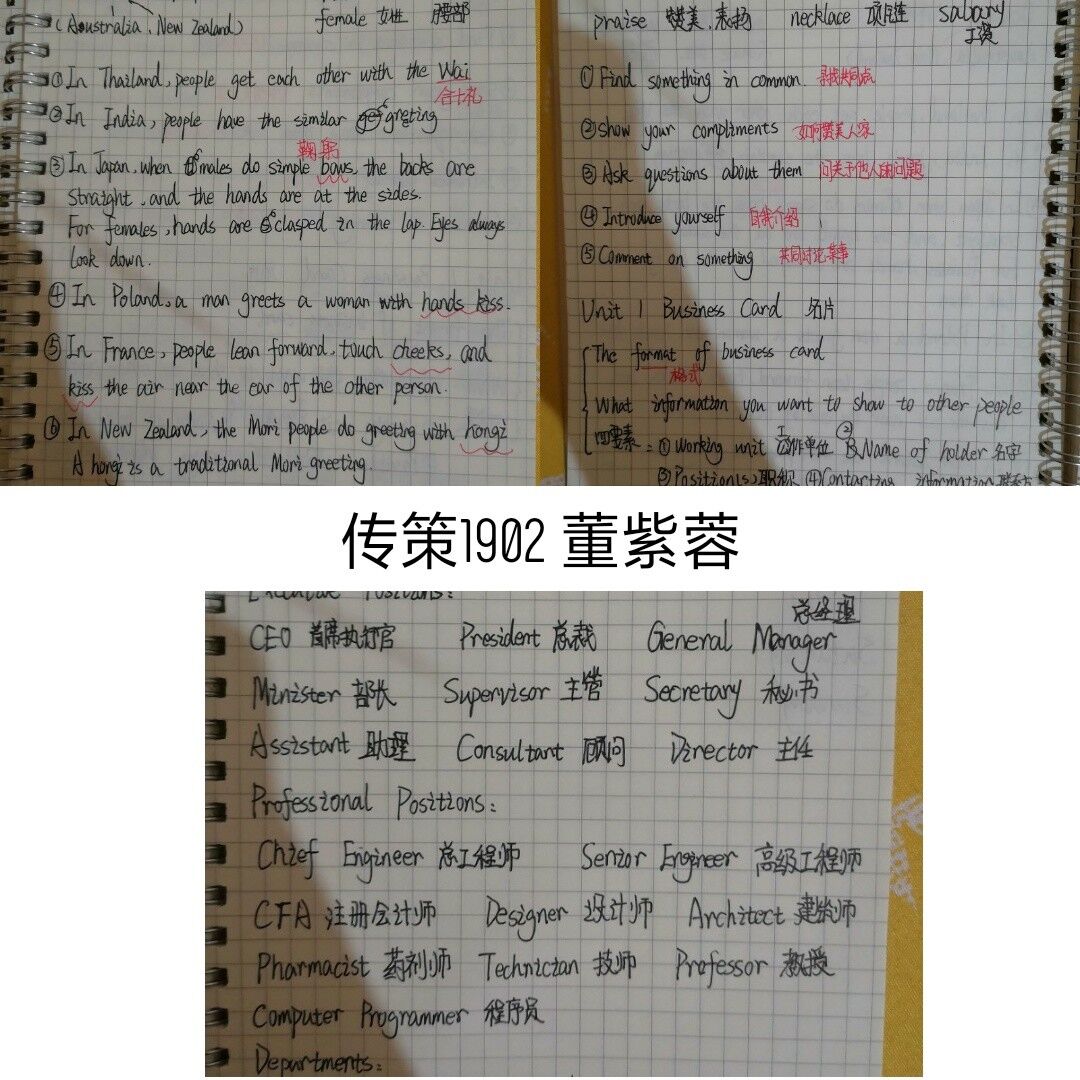 (Australia、New Zealand) female 女性 腰部
①In Thailand, people get each other with the Wai
合十礼
②In India, people have the similar greeting
鞠躬
③In Japan, when males do simple bows, the backs are
straight, and the hands are at the sides.
For females, hands are clasped in the lap. Eyes always
look down.
④In Poland, a man greets a woman with hands kiss.
⑤In France, people lean forward, touch cheeks, and
kiss the air near the ear of the other person.
⑥In New Zealand, the Mori people do greeting with hongi
A hongi is a traditional Mori greeting.
praise 赞美、表扬 necklace 项链 salary
工资
①Find something in common. 寻找共同点
②Show your compliments 如何赞美人家
③Ask questions about them 问关于他人的问题
④Introduce yourself 自我介绍
⑤Comment on something 共同讨论某事
Unit 1 Business Card 名片
The format of business card
格式
What information you want to show to other people
四要素:①Working unit 工作单位 ②Name of holder 名字
③Position(s)职称 ④Contacting information
传策1902 董紫蓉
Executive Positions:
总经理
CEO 首席执行官 President 总裁 General Manager
Minister 部长 Supervisor 主管 Secretary 秘书
Assistant 助理 Consultant 顾问 Director 主任
Professional Positions:
Chief Engineer 总工程师 Senior Engineer 高级工程师
CFA 注册会计师 Designer 设计师 Architect 建筑师
Pharmacist 药剂师 Technician 技师 Professor 教授
Computer Programmer 程序员
Departments: